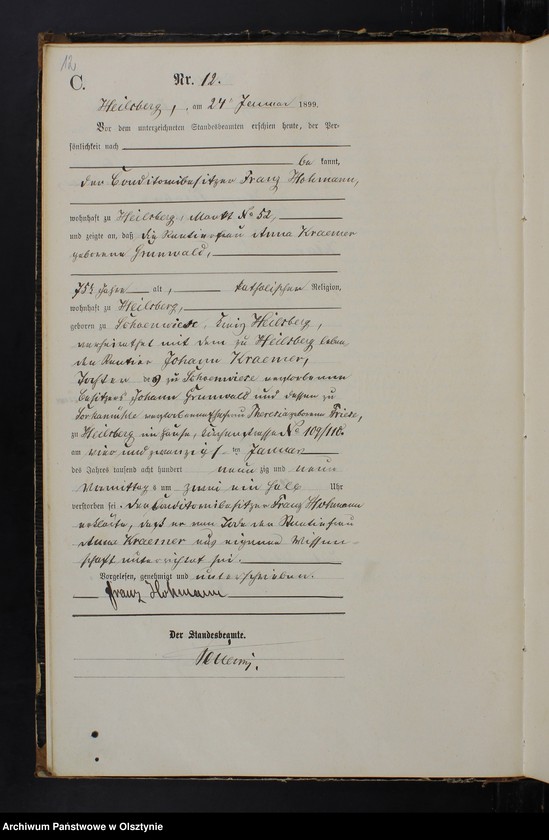 12
C.
Nr. 12.
Heilsberg, am 24. Januar 1899.
Vor dem unterzeichneten Standesbeamten erschien heute, der Per-
sönlichkeit nach
be kannt,
der Conditoreibesitzer Franz Hohmann,
wohnhaft zu Heilsberg, Markt No 52,
und zeigte an, daß die Rentierfrau Anna Kraemer
geborene Grunwald,
75½ Jahre alt, katholischer Religion,
wohnhaft zu Heilsberg,
geboren zu Schoenwiese, Kreis Heilsberg,
verheirathet mit dem zu Heilsberg lebenden
Rentier Johann Kraemer,
Tochter des zu Schoenwiese verstorbenen
Besitzers Johann Grunwald und dessen zu
verstorbenen Ehefrau Theresia geborene Friese,
zu Heilsberg im Hause, No 109/110.
am vier und zwanzigsten Januar
des Jahres tausend acht hundert neun zig und neun
Vormittags um zwei ein halb Uhr
verstorben sei. Der Conditoreibesitzer Franz Hohmann
erklärte, daß er vom Tode der Rentierfrau
Anna Kraemer aus eigener Wissen-
schaft unterrichtet sei.
Vorgelesen, genehmigt und unterschrieben.
Franz Hohmann
Der Standesbeamte.
Archiwum Państwowe w Olsztynie